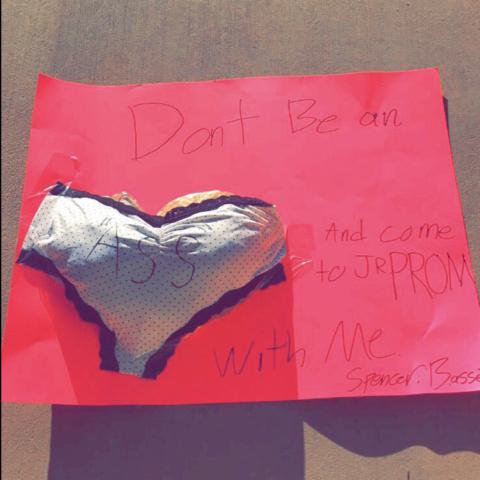 Dont Be an
ASS
And come
to JR PROM
With Me.
Spencer.